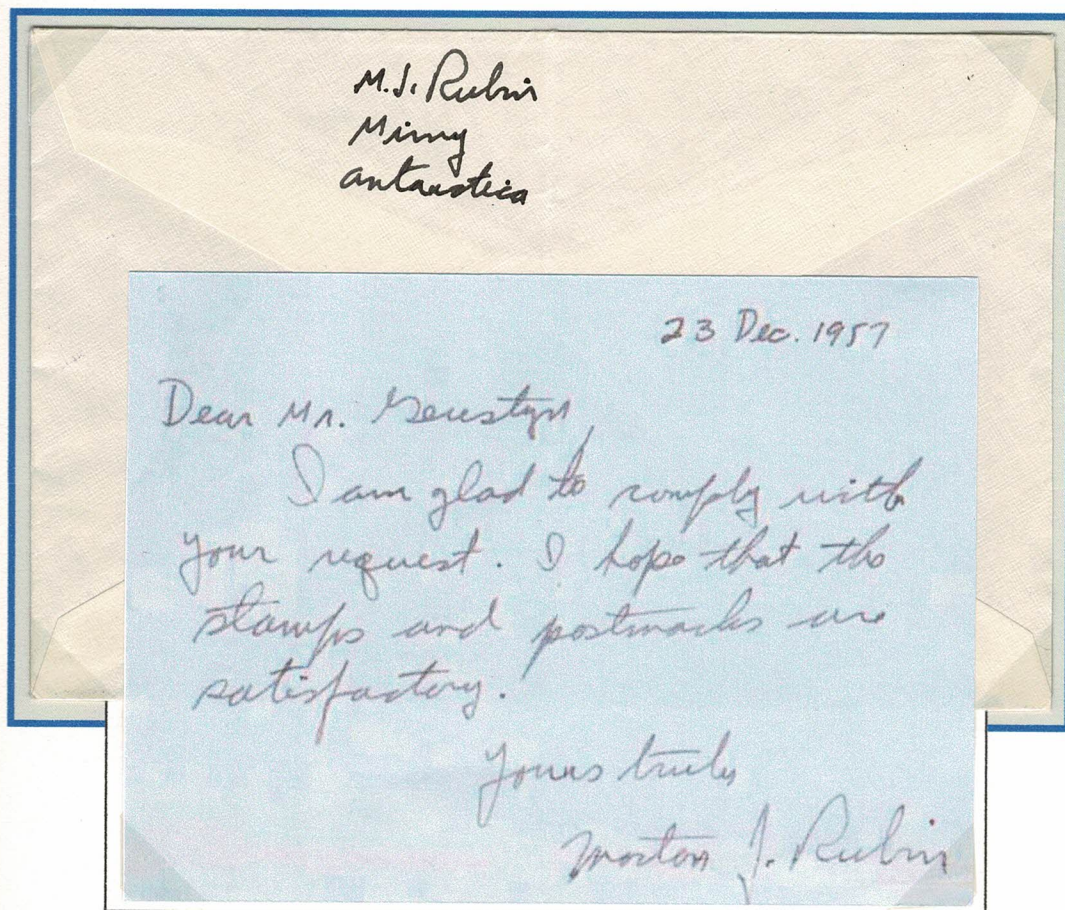 M.J. Rubin
Mirny
Antarctica
23 Dec. 1957
Dear Mr.
I am glad to comply with
your request. I hope that the
stamps and postmarks are
satisfactory.
Yours truly
Morton J. Rubin